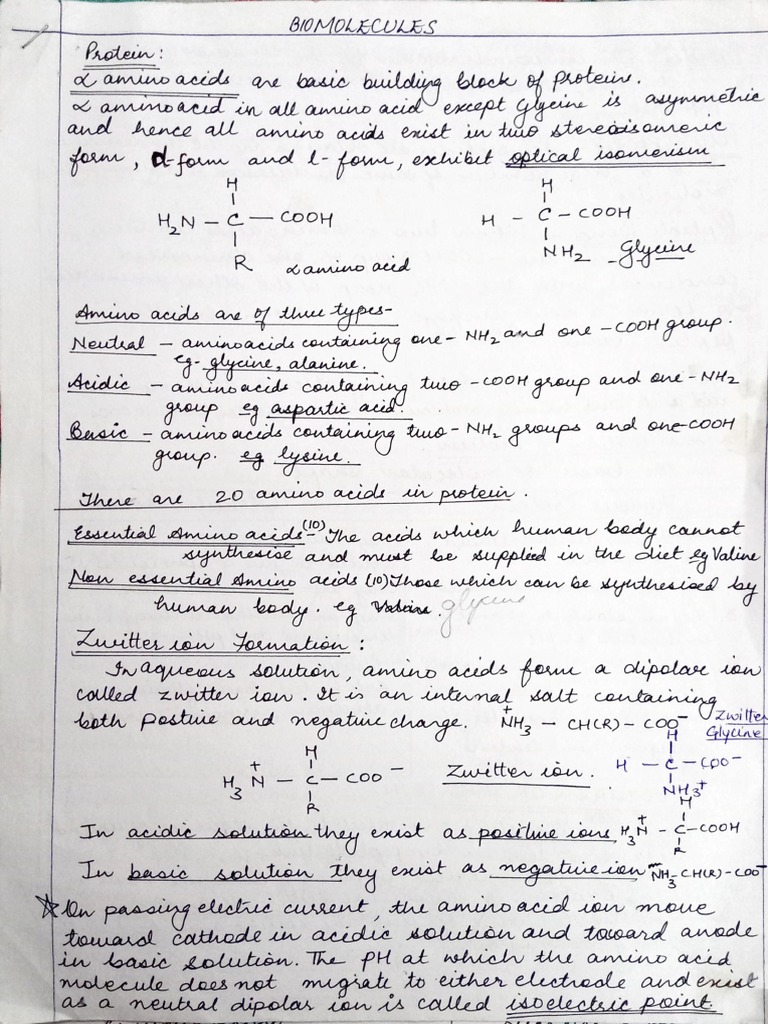 BIOMOLECULES
Protein:
α amino acids are basic building block of protein.
α amino acid in all amino acid except glycine is asymmetric
and hence all amino acids exist in two stereoisomeric
form, d-form and l-form, exhibit optical isomerism
H H
H2N – C – COOH H – C – COOH
R α amino acid NH2 Glycine
Amino acids are of three types-
Neutral – aminoacids containing one -NH2 and one -COOH group.
eg- glycine, alanine.
Acidic – aminoacids containing two -COOH group and one -NH2
group eg aspartic acid.
Basic – aminoacids containing two -NH2 groups and one-COOH
group. eg lysine.
There are 20 amino acids in protein.
Essential Amino acids(10)- The acids which human body cannot
synthesise and must be supplied in the diet eg Valine
Non essential Amino acids (10) Those which can be synthesised by
human body. eg glycine
Zwitter ion Formation:
In aqueous solution, amino acids form a dipolar ion
called zwitter ion. It is an internal salt containing
both postive and negative charge. +NH3 – CH(R) – COO– Zwitter
Glycine
H H
H3N+ – C – COO– Zwitter ion. H – C – COO–
R NH3+
H
In acidic solution they exist as positive ions H3N+ – C – COOH
R
In basic solution they exist as negative ion NH3 – CH(R) – COO–
☆ On passing electric current, the amino acid ion move
toward cathode in acidic solution and toward anode
in basic solution. The PH at which the amino acid
molecule does not migrate to either electrode and exist
as a neutral dipolar ion is called isoelectric point